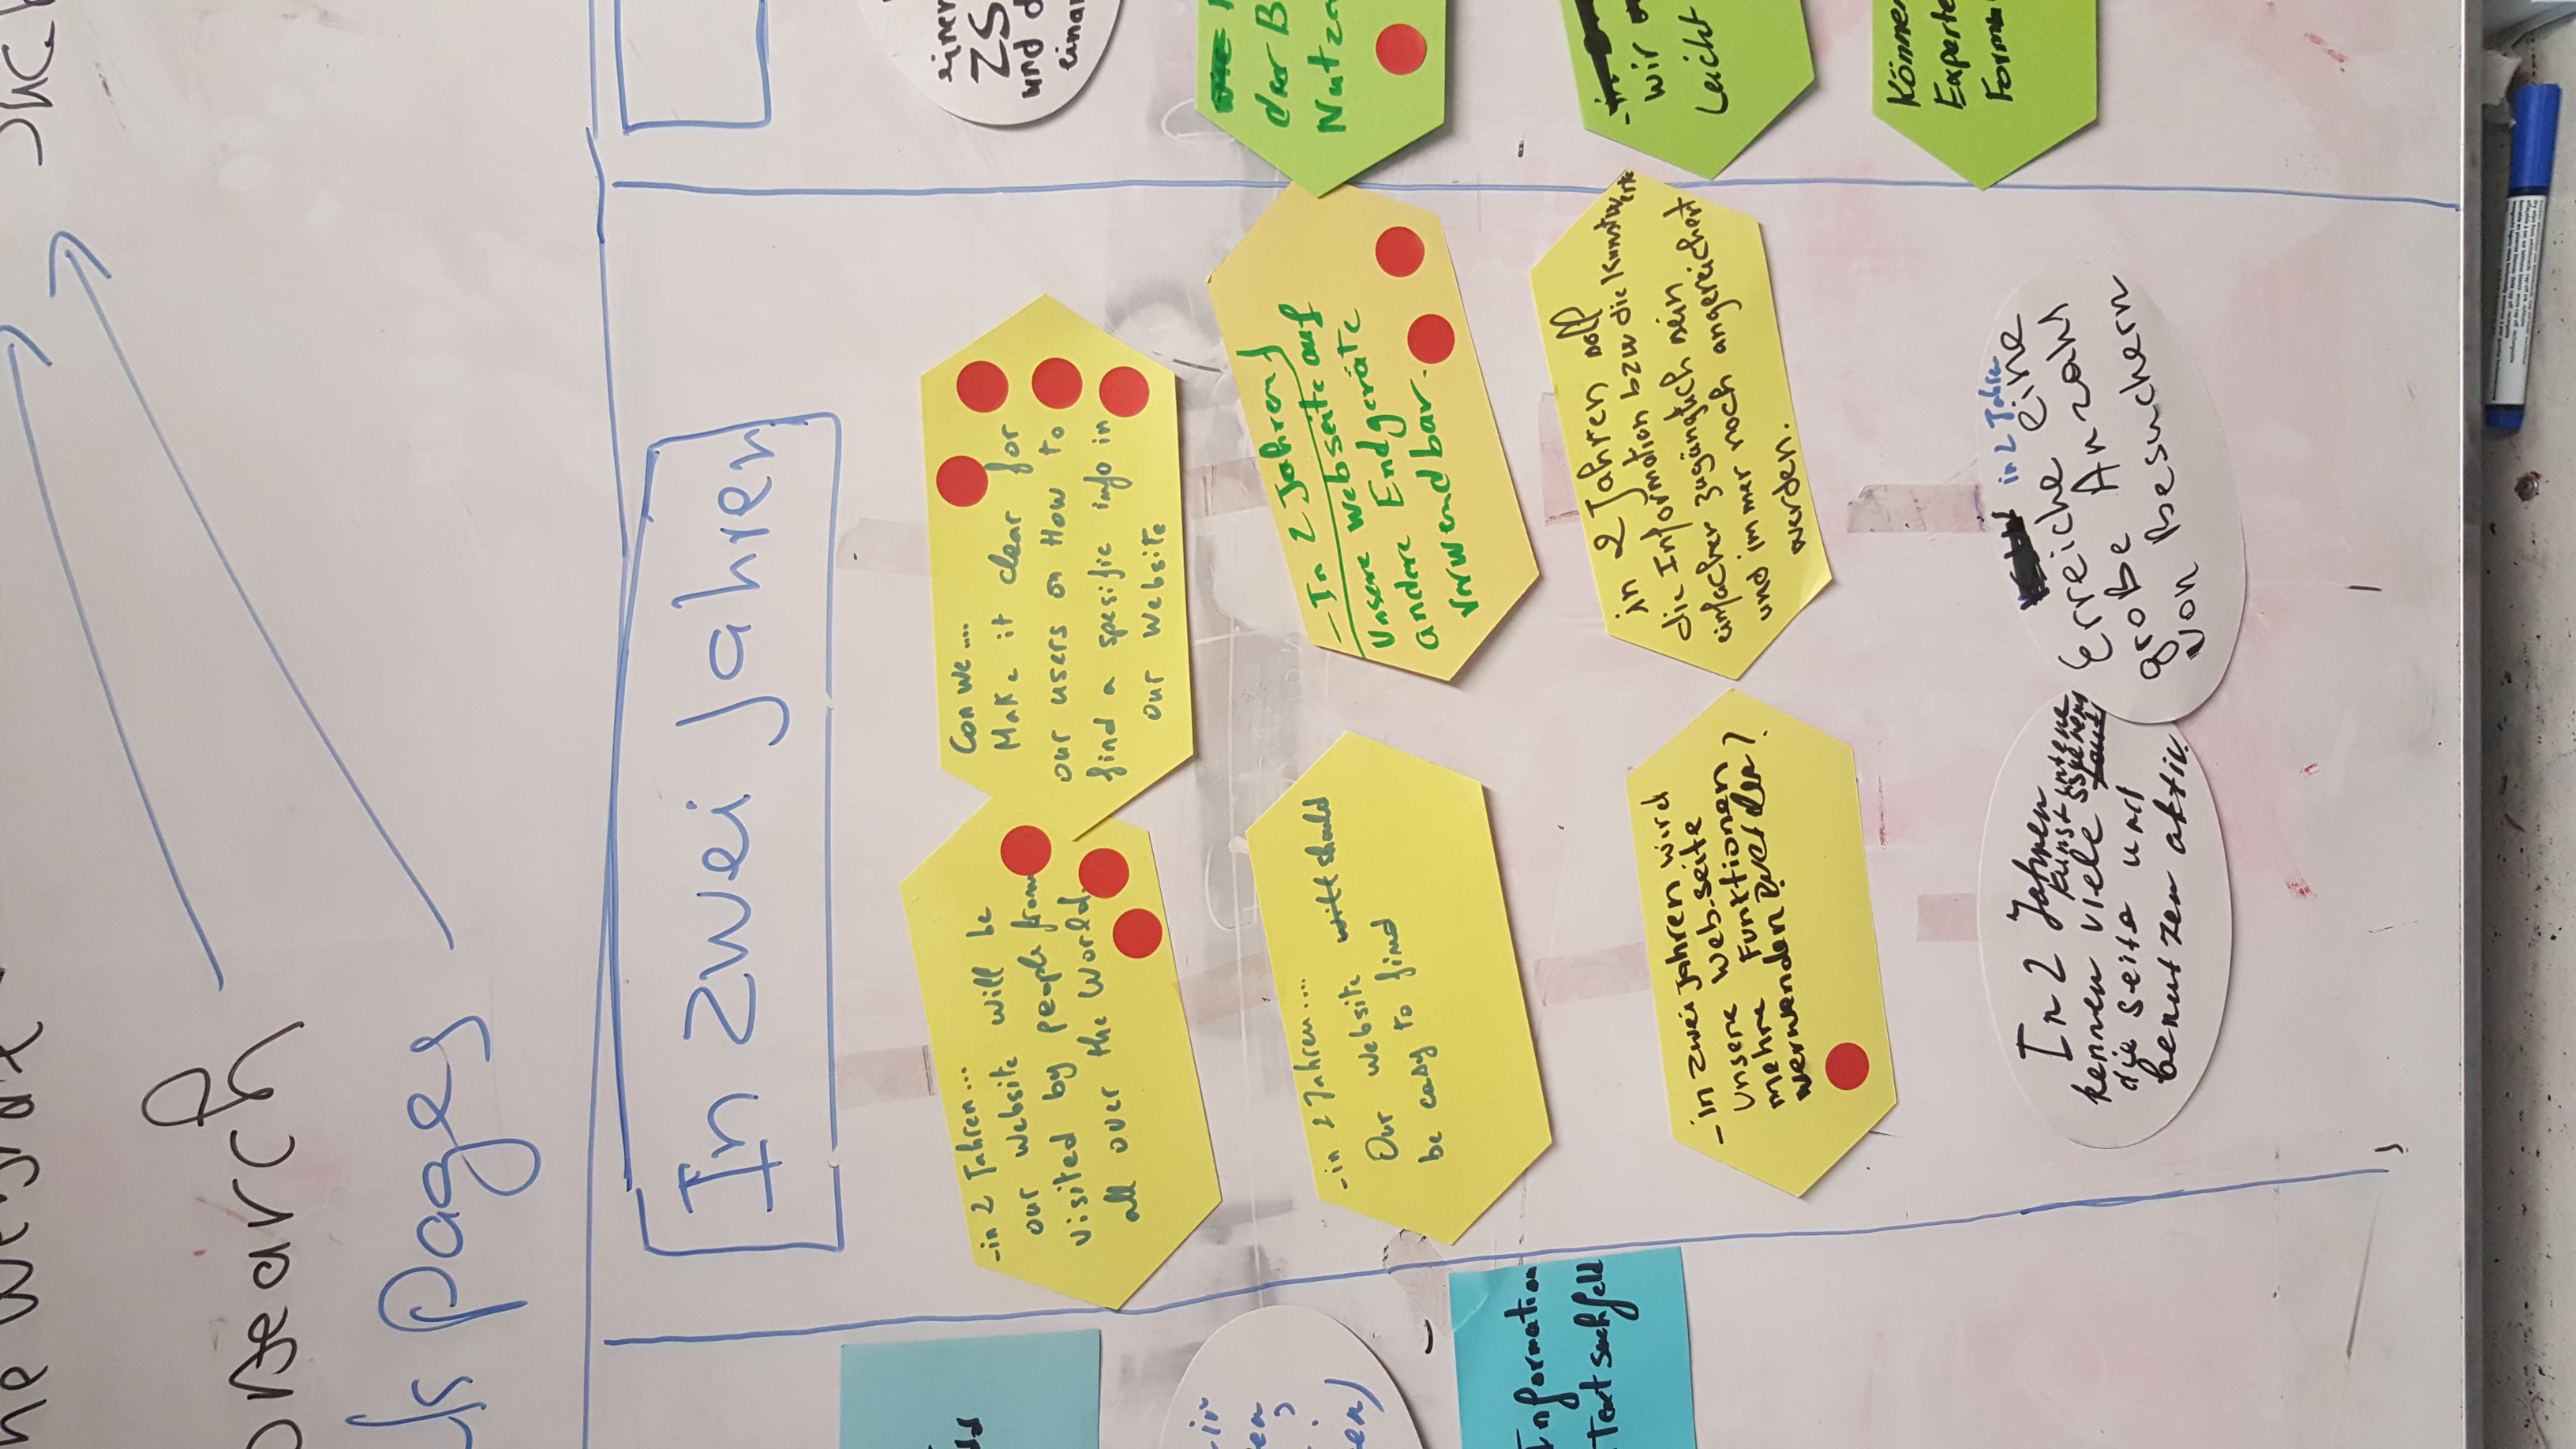 search
pages
In zwei Jahren
-in 2 Jahren...
our website will be
visited by people from
all over the World.
Con we....
Make it clear for
our users on How to
find a spesific info in
our website
-in 2 Jahren....
Our website will should
be easy to find
-In 2 Jahren
Unsere Webseite auf
andere Endgeräte
verwendbar.
-in zwei Jahren wird
unsere Web-seite
mehre Funktionen
verwenden werden?
in 2 Jahren soll
die Information bzw die Kunstwerke
einfacher zugänglich sein
und immer noch angereichert
werden.
In 2 Jahren
kennen viele Kunst
die seite und
benutzen aktiv.
in 2 Jahren
Erreiche eine
große Anzahl
von Besuchern
Information
Textsuchfeld
einer
ZS
und d
einan
der B
Nutze
wir
Leicht
Können
Experte
Form